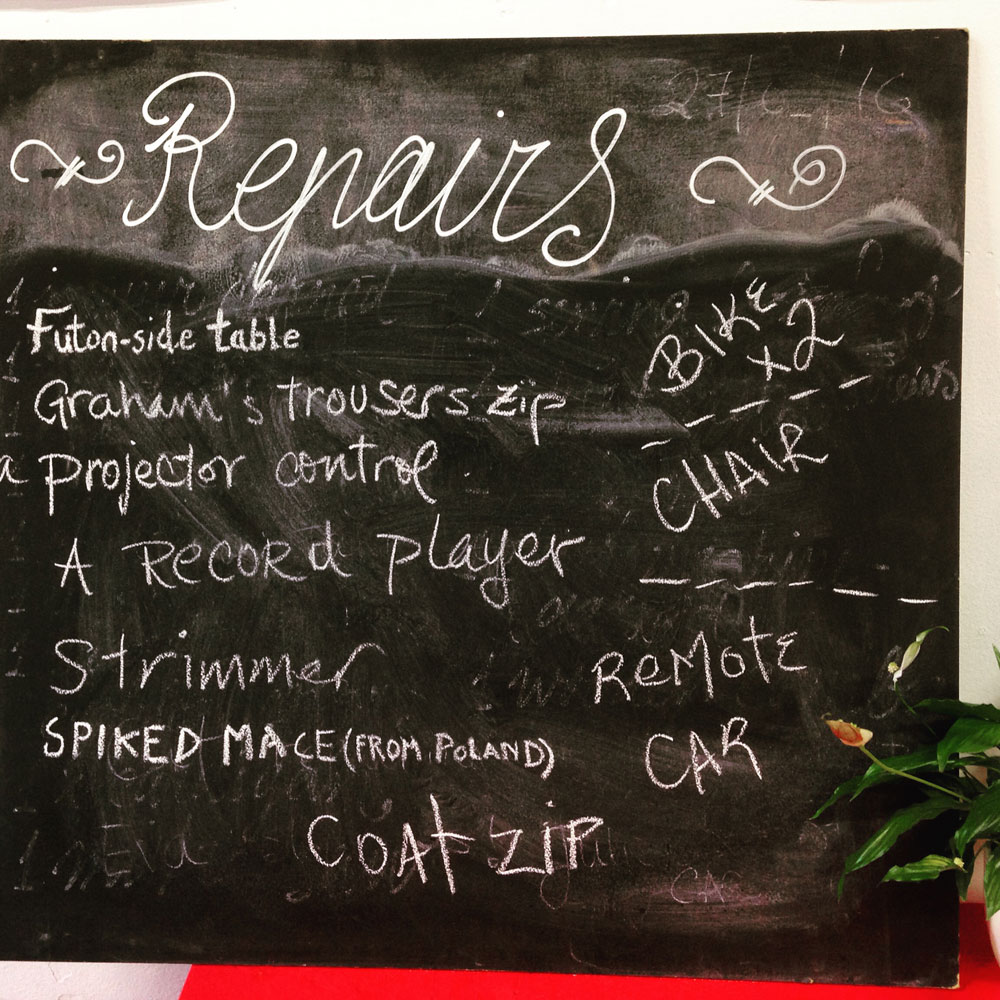 Repairs
Futon-side table
Graham's trousers zip
a projector control
A RECORd player
Strimmer
SPIKED MACE (FROM POLAND)
COAT ZIP
BIKE
x2
CHAIR
REMOTE
CAR